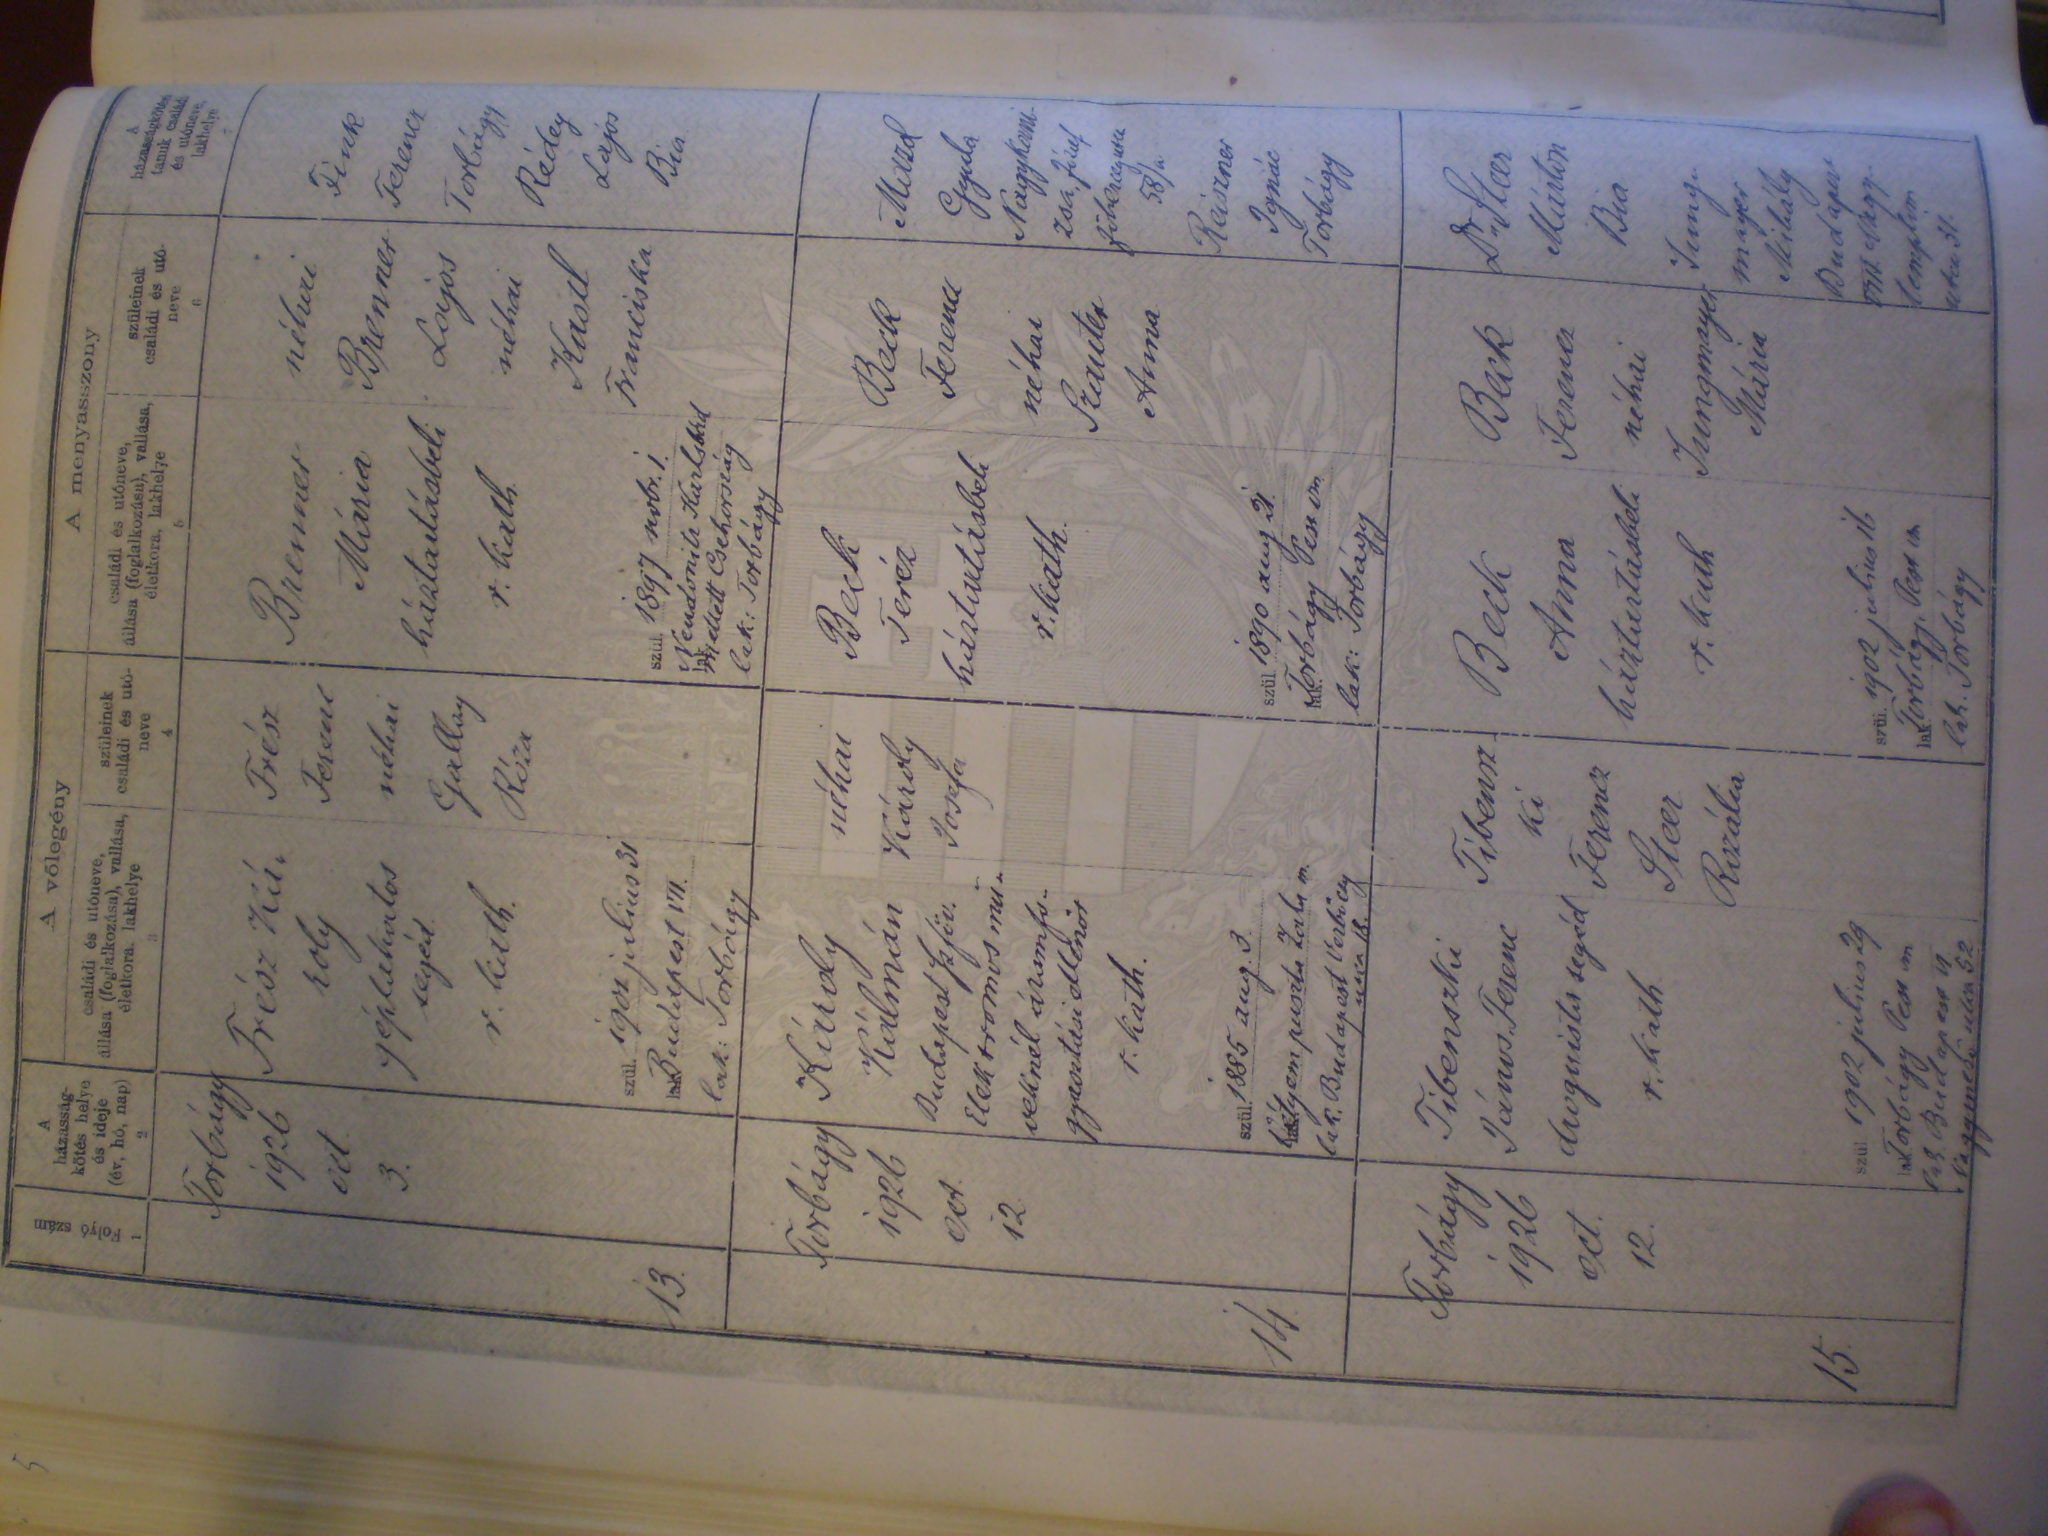 A vőlegény
A menyasszony
Folyó szám
A házasság-
kötés helye
és ideje
(év, hó, nap)
családi és utóneve,
állása (foglalkozása), vallása,
életkora, lakhelye
szüleinek
családi és utó-
neve
családi és utóneve,
állása (foglalkozása), vallása,
életkora, lakhelye
szüleinek
családi és utó-
neve
A
házasságkötési
tanuk családi
és utóneve,
lakhelye
1
2
3
4
5
6
7
13.
Torbágy
1926
oct.
3.
Trész Ká-
roly
géplakatos
segéd
r. kath.
szül. 1902 julius 31
Budapest VII.
lak: Torbágy
Trész
Ferenc
néhai
Gallay
Róza
Brenner
Mária
háztartásbeli
r. kath.
szül. 1897 nobr. 1.
Karlsbad
mellett Csehország
lak: Torbágy
néhai
Brenner
Lajos
néhai
Kastl
Franciska
Fink
Ferencz
Torbágy
Rédey
Lajos
Bia
14.
Torbágy
1926
oct.
12.
Károly
Kálmán
Budapest szföv.
Elektromos mű-
veknél áramfo-
gyasztási ellenőr
r. kath.
szül. 1885 aug. 3.
Zala m.
lak. Budapest Verbőczy
utca 18.
néhai
Károly
Josefa
Beck
Teréz
háztartásbeli
r. kath.
szül. 1890 aug 21.
Torbágy Pest vm.
lak: Torbágy
Beck
Ferenc
néhai
Szauter
Anna
Gyula
Nagykani-
zsa, József
főherceg utca
58/a.
Reiszner
Ignác
Torbágy
15.
Torbágy
1926
oct.
12.
Tibenszki
János Ferenc
droguista segéd
r. kath
szül. 1902 julius 29
Torbágy Pest vm
lak. Budapest VI.
Vágymező utca 52
Tibensz-
ki
Ferencz
Steer
Rozália
Beck
Anna
háztartásbeli
r. kath
szül. 1902 julius 16
Torbágy, Pest vm
lak. Torbágy
Beck
Ferencz
néhai
Jungmayer
Mária
Dr Steer
Márton
Bia
Jung-
mayer
Mihály
Budapest
VIII. Nagy-
templom
utca 31.
5